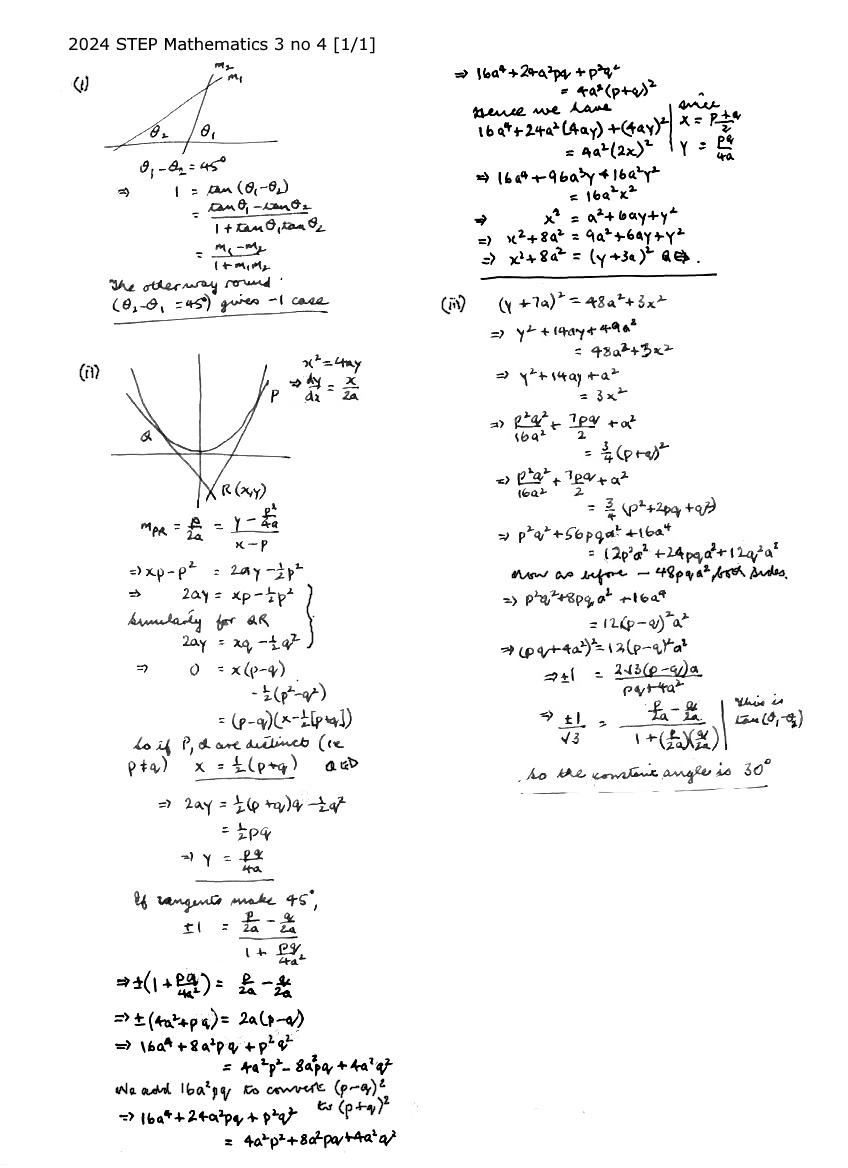 2024 STEP Mathematics 3 no 4 [1/1]
(i)
m₂
m₁
θ₂ θ₁
θ₁-θ₂ = 45°
⇒ 1 = tan (θ₁-θ₂)
= (tanθ₁ - tanθ₂)/(1 + tanθ₁tanθ₂)
= (m₁-m₂)/(1+m₁m₂)
The other way round
(θ₂-θ₁ = 45°) gives -1 case
(ii)
x² = 4ay
⇒ dy/dx = x/2a
P
Q
R(x,y)
m_PR = p/2a = (y - p²/4a)/(x-p)
⇒ xp-p² = 2ay - ½p²
⇒ 2ay = xp - ½p²
Similarly for QR
2ay = xq - ½q²
⇒ 0 = x(p-q)
-½(p²-q²)
= (p-q)(x-½[p+q])
So if P, Q are distinct (ie
p≠q) x = ½(p+q) QED
⇒ 2ay = ½(p+q)q - ½q²
= ½pq
⇒ y = pq/4a
If tangents make 45°,
±1 = (p/2a - q/2a)/(1 + pq/4a²)
⇒ ±(1 + pq/4a²) = p/2a - q/2a
⇒ ±(4a²+pq) = 2a(p-q)
⇒ 16a⁴ + 8a²pq + p²q²
= 4a²p² - 8a²pq + 4a²q²
We add 16a²pq to convert (p-q)²
to (p+q)²
⇒ 16a⁴ + 24a²pq + p²q²
= 4a²p² + 8a²pq + 4a²q²
⇒ 16a⁴ + 24a²pq + p²q²
= 4a²(p+q)²
Hence we have
since
x = (p+q)/2
y = pq/4a
16a⁴ + 24a²(4ay) + (4ay)²
= 4a²(2x)²
⇒ 16a⁴ + 96a³y + 16a²y²
= 16a²x²
⇒ x² = a² + 6ay + y²
⇒ x² + 8a² = 9a² + 6ay + y²
⇒ x² + 8a² = (y + 3a)² QED.
(iii) (y + 7a)² = 48a² + 3x²
⇒ y² + 14ay + 49a²
= 48a² + 3x²
⇒ y² + 14ay + a²
= 3x²
⇒ p²q²/16a² + 7pq/2 + a²
= ¾(p+q)²
⇒ p²q²/16a² + 7pq/2 + a²
= ¾(p² + 2pq + q²)
⇒ p²q² + 56pqa² + 16a⁴
= 12p²a² + 24pqa² + 12q²a²
Now as before - 48pqa², both sides.
⇒ p²q² + 8pqa² + 16a⁴
= 12(p-q)²a²
⇒ (pq + 4a²)² = 12(p-q)²a²
⇒ ±1 = 2√3(p-q)a/(pq + 4a²)
⇒ ±1/√3 = (p/2a - q/2a)/(1 + (p/2a)(q/2a))
This is
tan(θ₁-θ₂)
So the constant angle is 30°